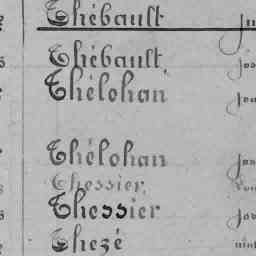 Thébault
Thébault
Thélohan
Thélohan
Thessier
Thessier
Thezé